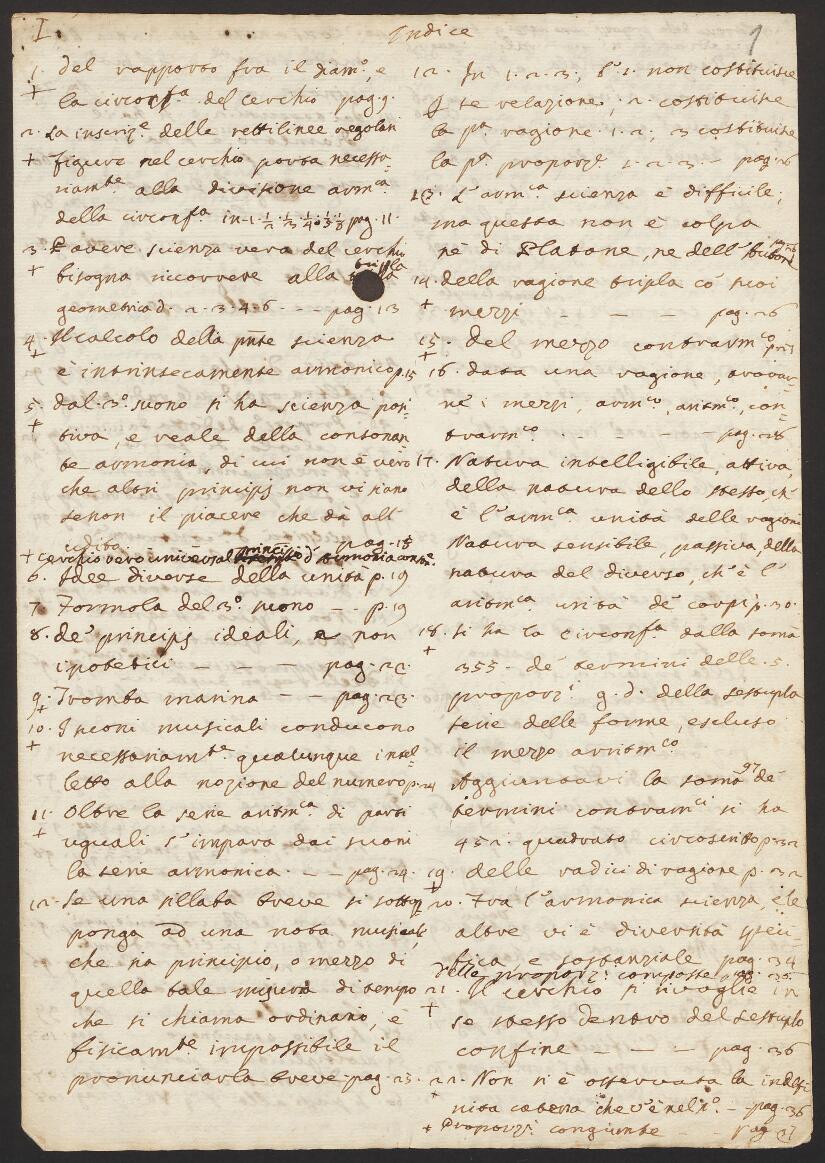 I. Indice 1
1. Del rapporto fra il diam.º, e
+ la circonf.ª del cerchio pag. 9.
2. La inscriz.e delle rettilinee regolari
+ figure nel cerchio porta necessa-
riam.te alla divisione arm.ca
della circonf.ª in 1. 1/2. 1/3. 1/4. 1/5. 1/6 pag. 11.
3. P avere scienza vera del cerchio
+ bisogna riccorrere alla tripla
geometrica d. 2. 3. 4. 6 - - - pag. 13
4. Il calcolo della pnte scienza
+ è intrinsecamente armonico p. 15
5. Dal 3.º suono si ha scienza posi-
+ tiva, e reale della consonan-
te armonia, di cui non è vero
che altri principj non vi siano
senon il piacere che dà all'
udito pag. 15
+ cerchio vero universal principio d' armonia
6. Idee diverse della unità p. 19
7. Formola del 3.º suono - - p. 19
8. de' principj ideali, e non
ipotetici - - - pag. 22.
9. Tromba marina - - pag. 23.
+
10. I suoni musicali conducono
+ necessariam.te qualunque intel-
letto alla nozione del numero p. 24
11. Oltre la serie aritm.ca di parti
+ uguali s'impara dai suoni
la serie armonica. - - pag. 24.
12. Se una sillaba breve si sottop-
ponga ad una nota musicale,
che sia principio, o mezzo di
quella tale misura di tempo
che si chiama ordinario, è
fisicam.te impossibile il
pronunciarla breve pag. 25.
12. In 1. 2. 3, l' 1. non costituisce
P se relazione; 2. costituisce
la p.ª ragione 1. 2; 3 costituisce
la p.ª proporz.e 1. 2. 3 - pag. 26
13. L'arm.ca scienza è difficile;
ma questa non è colpa
nè di Platone, ne dell'
pag. 26
14. della ragione tripla có suoi
+ mezzi - - - pag. 26
15. Del mezzo contrarm.co
+
16. data una ragione, trovar-
ne i mezzi, arm.co, aritm.co, con-
trarm.co - - - pag. 28
17. Natura intelligibile, attiva,
della natura dello stesso, ch'
è l'arm.ca unità delle ragioni
Natura sensibile, passiva, della
natura del diverso, ch' è l'
aritm.ca unità de' corpi p. 30.
18. si ha la circonf.ª dalla somã
+ 355. de' termini delle 5.
proporz.i g. d. della sestupla
serie delle forme, escluso
il mezzo aritm.co
Aggiuntavi la somã 97 de'
termini contrarm.ci si ha
452. quadrato circoscritto p. 32
19. delle radici di ragione p. 32
+
20. Fra l'armonica scienza, e le
altre vi è diversità speci-
fica, e sostanziale pag. 34
Delle proporz.i composte pag. 35.
21. Il cerchio si rivoglie in
+ se stesso dentro del sestuplo
confine - - - pag. 36
22. Non si è osservata la indefi-
+ nita catena che v'è nel - pag. 36
+ Proporz.i congiunte - - pag. 37